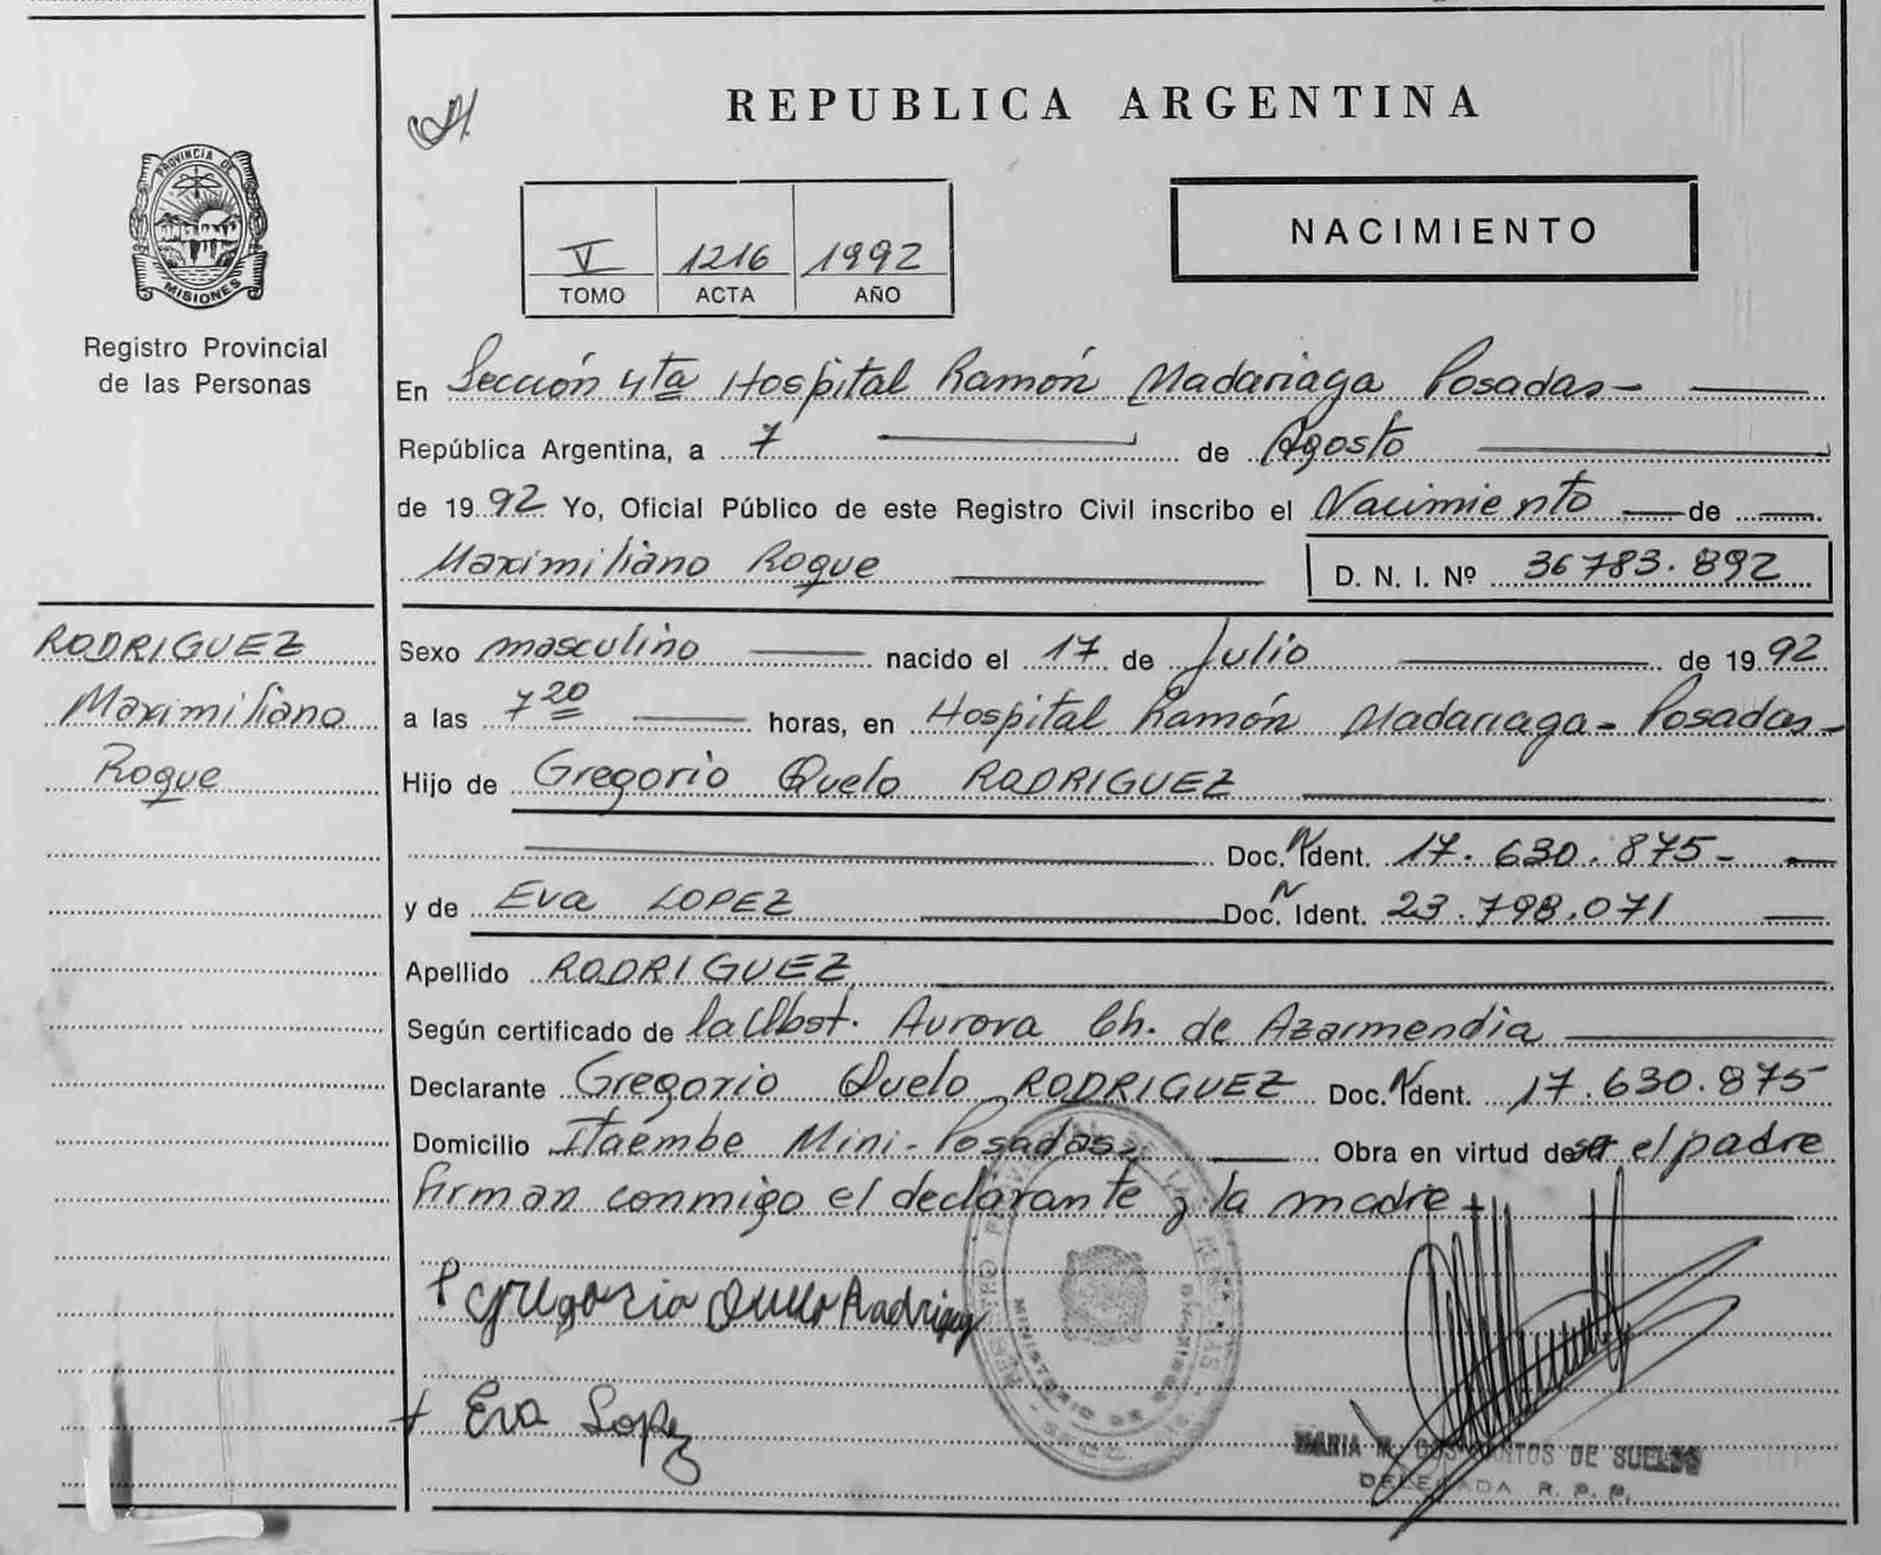 REPUBLICA ARGENTINA
PROVINCIA DE
MISIONES
Registro Provincial
de las Personas
V 1216 1992
TOMO ACTA AÑO
NACIMIENTO
En Sección 4ta Hospital Ramón Madariaga Posadas-
República Argentina, a 7 de Agosto
de 1992 Yo, Oficial Público de este Registro Civil inscribo el Nacimiento de
Maximiliano Roque D. N. I. Nº 36783.892
RODRIGUEZ
Maximiliano
Roque
Sexo masculino nacido el 17 de Julio de 1992
a las 7 20 horas, en Hospital Ramón Madariaga - Posadas-
Hijo de Gregorio Quelo RODRIGUEZ
Doc. N Ident. 17.630.875-
y de Eva LOPEZ Doc. N Ident. 23.798.071
Apellido RODRIGUEZ
Según certificado de la Obst. Aurora Ch. de Azarmendia
Declarante Gregorio Quelo RODRIGUEZ Doc. N Ident. 17.630.875
Domicilio Itaembe Mini-Posadas Obra en virtud de ser el padre
firman conmigo el declarante y la madre
Gregorio Quelo Rodriguez
Eva Lopez
MARIA M. DE SUELDO
DELEGADA R. P. P.